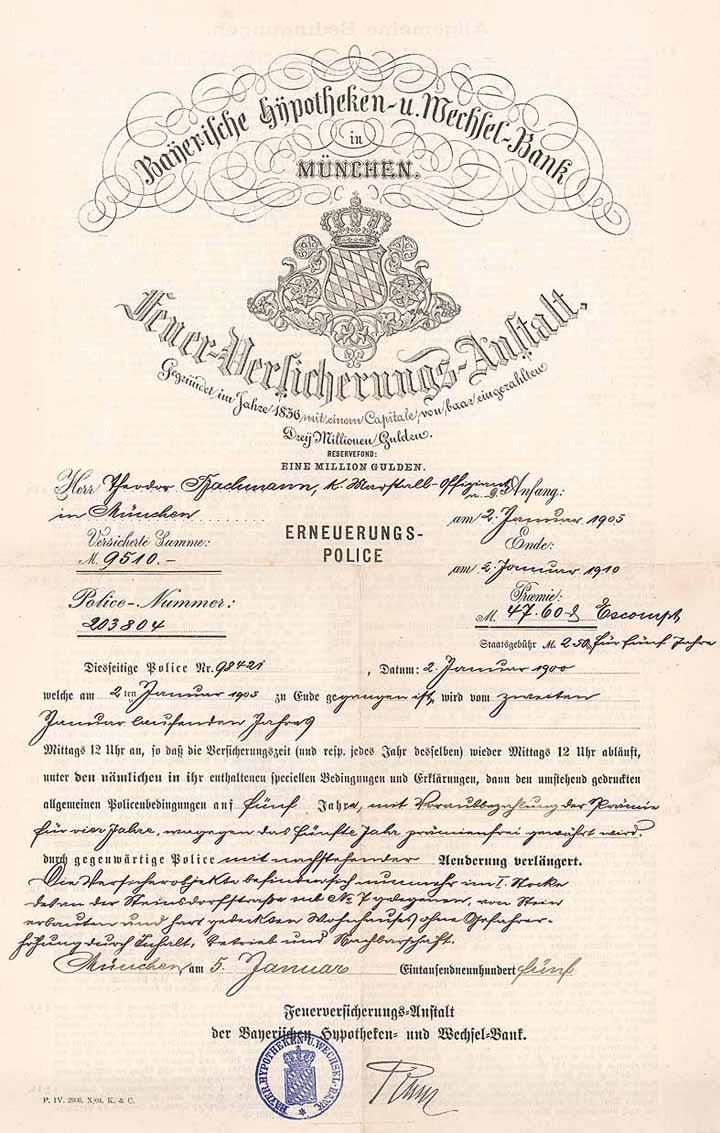 Bayerische Hypotheken- u. Wechsel-Bank
in
MÜNCHEN.
Feuer-Versicherungs-Anstalt.
Gegründet im Jahre 1836 mit einem Capitale von baar eingezahlten
Dreÿ Millionen Gulden.
RESERVEFOND:
EINE MILLION GULDEN.
Herr Theodor Bachmann, k. Marstall-Offiziant
in München
Anfang:
am 2. Januar 1905
Versicherte Summe:
M. 9510.-
ERNEUERUNGS-
POLICE
Ende:
am 2. Januar 1910
Police-Nummer:
203804
Præmie:
M. 47.60 ₰ Escompt
Staatsgebühr M. 2 50 ₰ für fünf Jahre
Diesseitige Police Nr. 98421, Datum: 2. Januar 1900
welche am 2ten Januar 1905 zu Ende gegangen ist, wird vom zweiten
Januar laufenden Jahres
Mittags 12 Uhr an, so daß die Versicherungszeit (und resp. jedes Jahr desselben) wieder Mittags 12 Uhr abläuft,
unter den nämlichen in ihr enthaltenen speciellen Bedingungen und Erklärungen, dann den umstehend gedruckten
allgemeinen Policenbedingungen auf fünf Jahre, mit Vorausbezahlung der Prämie
für vier Jahre, wogegen das fünfte Jahr prämienfrei gewährt wird.
durch gegenwärtige Police mit nachstehender Aenderung verlängert.
Die Versicherobjekte befinden sich nunmehr im I. Stocke
des an der Steinsdorfstraße sub No 7 gelegenen, von Stein
erbauten und hart gedeckten Wohnhauses ohne Gefahrer-
höhung durch Inhalt, Betrieb und Nachbarschaft.
München am 5. Januar Eintausendneunhundert fünf
Feuerversicherungs-Anstalt
der Bayerischen Hypotheken- und Wechsel-Bank.
BAYER. HYPOTHEKEN- U. WECHSEL-BANK
P. IV. 2000. X/04. K. & C.